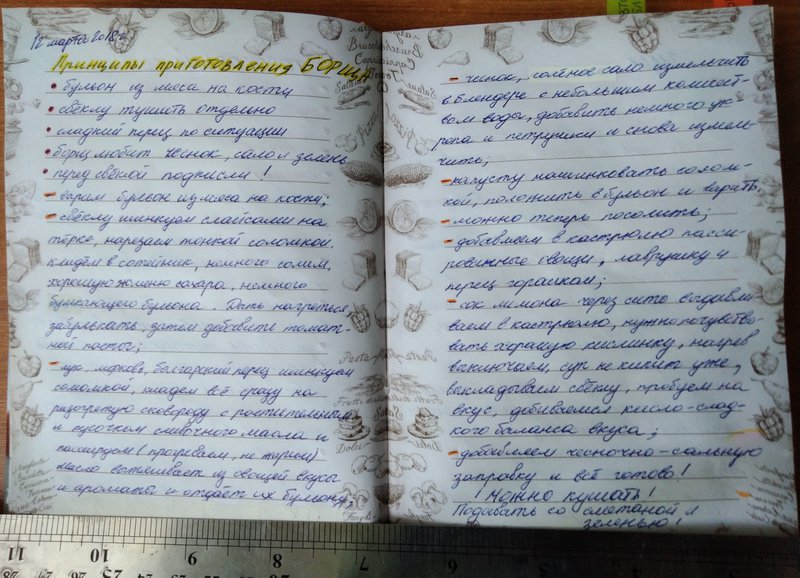 12 марта 2018г.
Принципы приготовления БОРЩА
• бульон из мяса на косту
• свёклу тушить отдельно
• сладкий перец по ситуации
• борщ любит чеснок, сало и зелень
• перед свёклой подкисли!
- варим бульон из мяса на косту;
- свёклу шинкуем слайсами на
тёрке, нарезаем тонкой соломкой.
кладём в сотейник, немного солим,
хорошую жменю сахара, немного
бульона. Дать нагреться,
забулькать, затем добавить томат-
ной пасты;
- лук, морковь, болгарский перец шинкуем
соломкой, кладём всё сразу на
разогретую сковороду с растительным
и кусочком сливочного масла и
пассируем (прогреваем, не жарим)
масло вытягивает из овощей вкусы
и ароматы и отдаёт их бульону,
- чеснок, солёное сало измельчить
в блендере с небольшим количест-
вом воды, добавить немного ук-
ропа и петрушки и снова измель-
чить;
- капусту нашинковать солом-
кой, положить в бульон и варить,
- можно теперь посолить;
- добавляем в кастрюлю пасси-
рованные овощи, лаврушку и
перец горошком;
- сок лимона через сито выдавли-
ваем в кастрюлю, нужно почувство-
вать хорошую кислинку, нагрев
выключаем, суп не кипит уже,
выкладываем свёклу, пробуем на
вкус, добиваемся кисло-слад-
кого баланса вкуса;
- добавляем чесночно-сальную
заправку и всё готово!
! Можно кушать!
Подавать со сметаной и
зеленью!
11 10 9 8 7 6 5